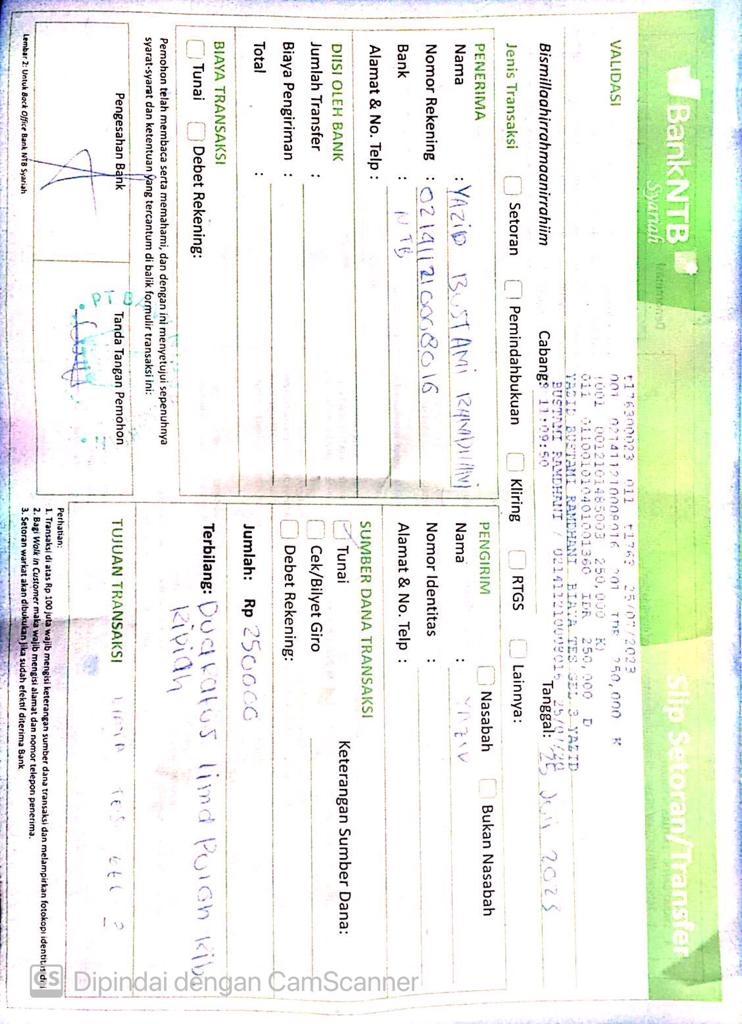 BankNTB
Syariah
Slip Setoran/Transfer
VALIDASI
t1763 25/07/2023
250,000 K
0012101485003 250,000 K
011 011001010401001360 IDR 250,000 D
YAZID BUSTAMI RAMDHANI BIAYA TES GEL 3 YAZID
BUSTAMI RAMDHANI /
11:09:50
Bismillaahirrohmaanirrohiim
Cabang:
Tanggal: 25 Juli 2023
Jenis Transaksi
Setoran
Pemindahbukuan
Kliring
RTGS
Lainnya:
PENERIMA
Nama : YAZID BUSTAMI RAMDHANI
Nomor Rekening : 021411210008016
Bank : NTB
Alamat & No. Telp :
PENGIRIM
Nasabah
Bukan Nasabah
Nama : YAZID
Nomor Identitas :
Alamat & No. Telp :
DIISI OLEH BANK
Jumlah Transfer :
Biaya Pengiriman :
Total :
SUMBER DANA TRANSAKSI
Tunai
Keterangan Sumber Dana:
Cek/Bilyet Giro
Debet Rekening:
BIAYA TRANSAKSI
Tunai
Debet Rekening:
Jumlah: Rp 250000
Terbilang: Dua ratus lima Puluh Rib
Ripiah
Pemohon telah membaca serta memahami, dan dengan ini menyetujui sepenuhnya
syarat-syarat dan ketentuan yang tercantum di balik formulir transaksi ini:
Pengesahan Bank
Tanda Tangan Pemohon
TUJUAN TRANSAKSI
TES GEL 3
Lembar 2: Untuk Back Office Bank NTB Syariah
Perhatian:
1. Transaksi di atas Rp 100 juta wajib mengisi keterangan sumber dana transaksi dan melampirkan fotokopi identitas diri
2. Bagi Walk in Customer maka wajib mengisi alamat dan nomor telepon penerima.
3. Setoran warkat akan dibukukan jika sudah efektif diterima Bank
CS Dipindai dengan CamScanner